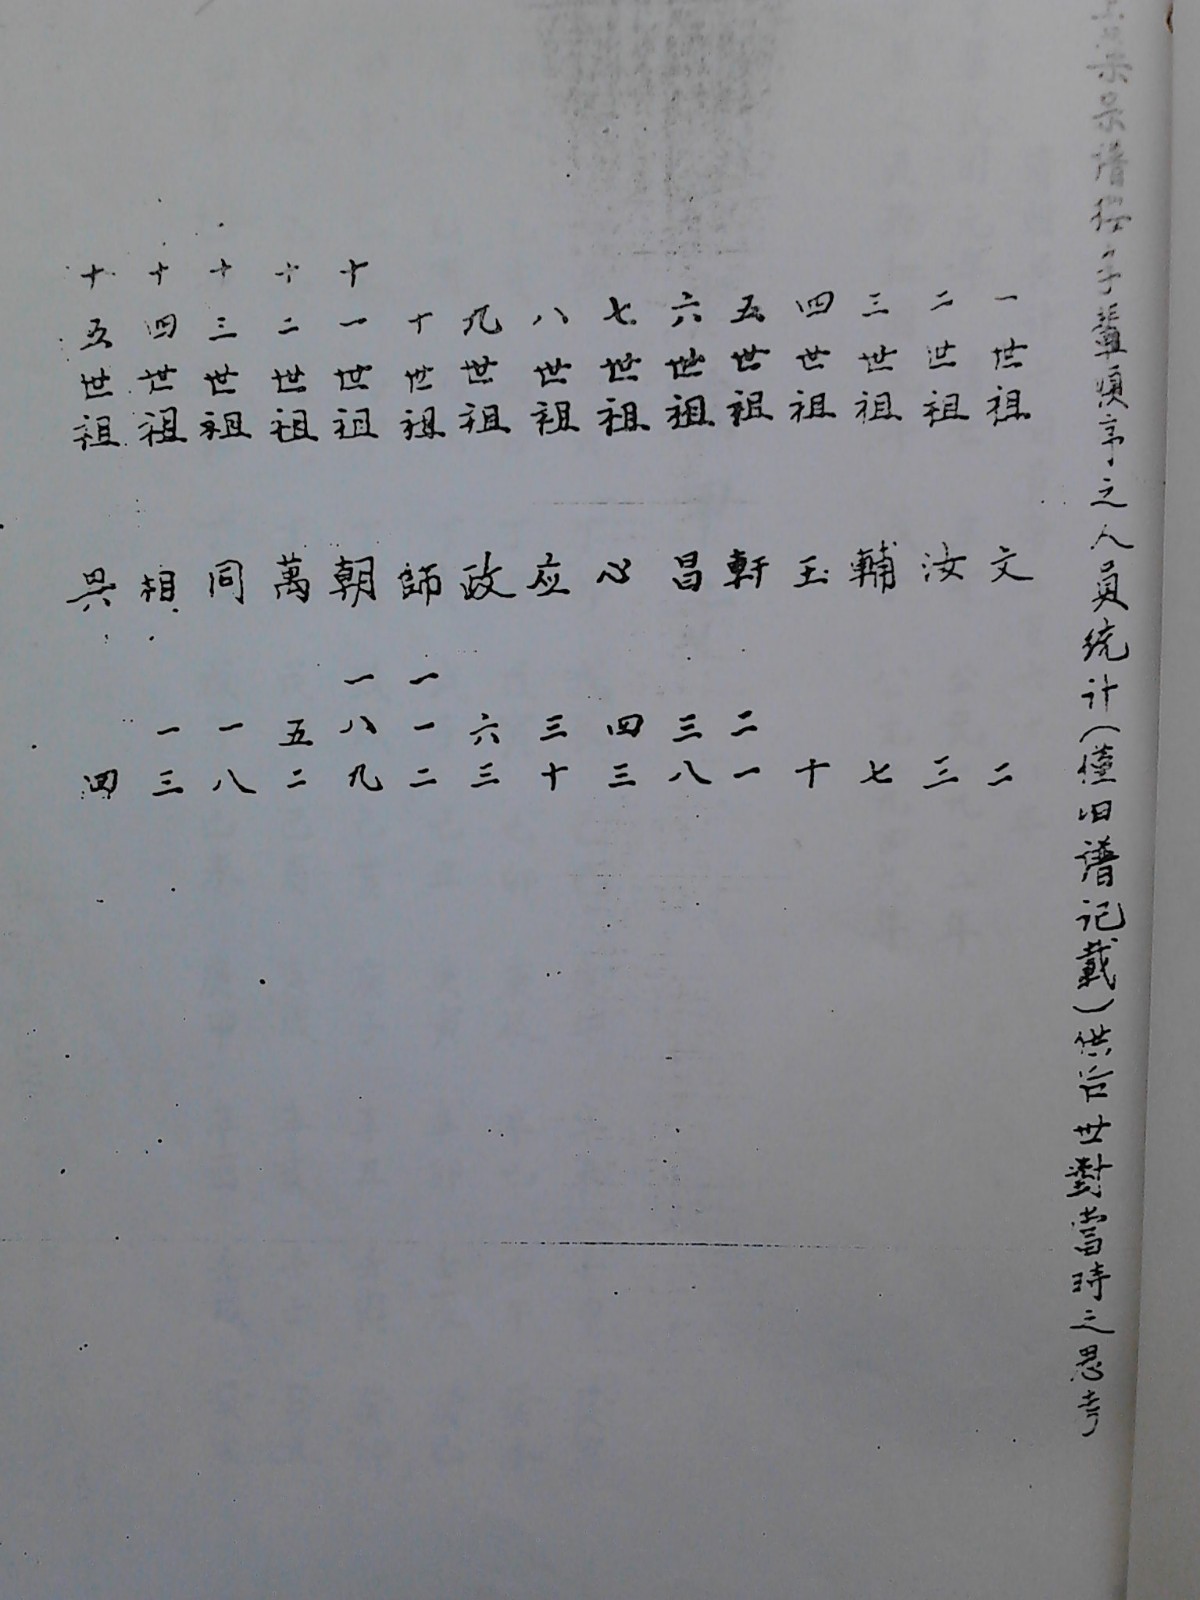 宗譜按字輩順序之人員统计(僅旧谱记載)供后世對當時之思考
一世祖 文 二
二世祖 汝 三
三世祖 輔 七
四世祖 玉 十
五世祖 軒 二一
六世祖 昌 三八
七世祖 心 四三
八世祖 应 三十
九世祖 政 六三
十世祖 師 一一二
十一世祖 朝 一八九
十二世祖 萬 五二
十三世祖 同 一八
十四世祖 相 一三
十五世祖 四